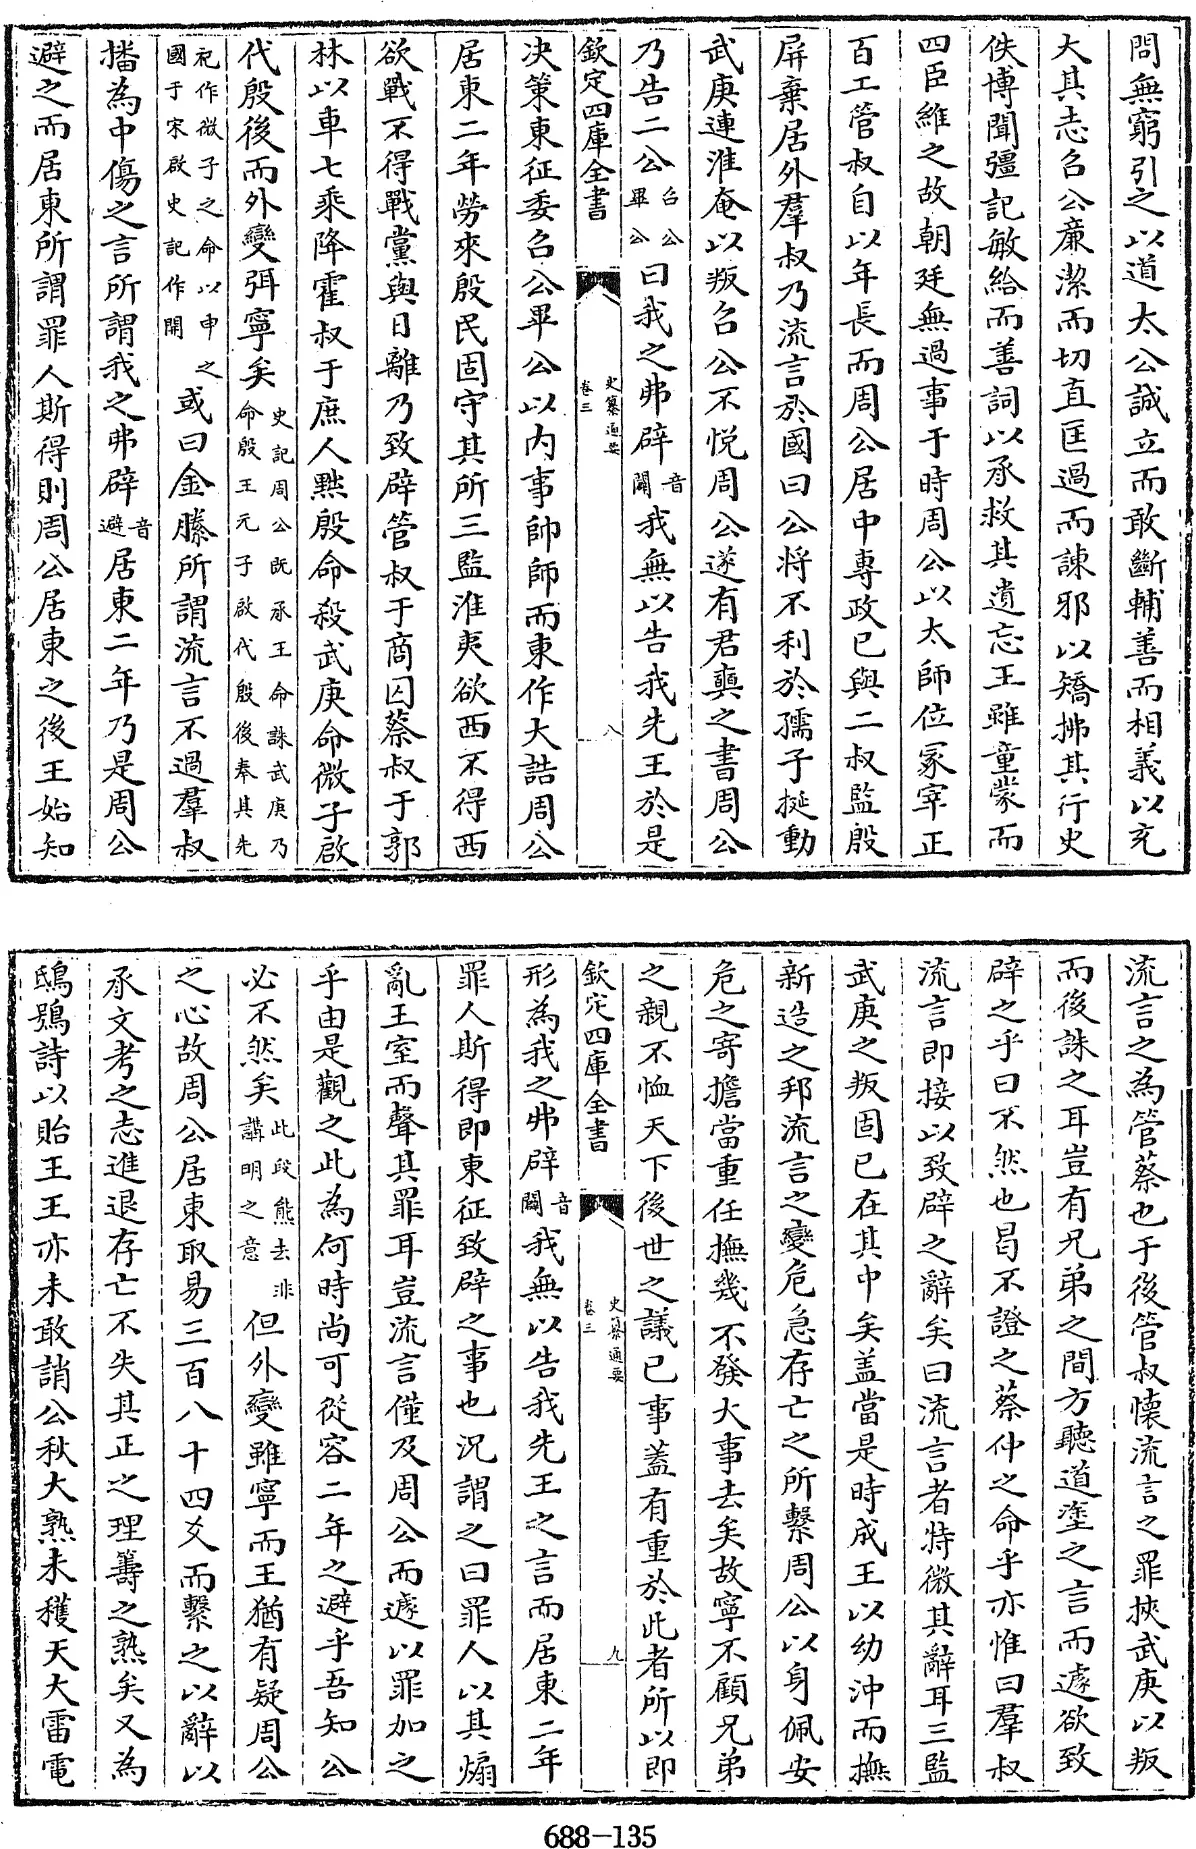 問無窮引之以道太公誠立而敢斷輔善而相義以充
大其志召公廉潔而切直匡過而諫邪以矯拂其行史
佚博聞彊記敏給而善詞以承救其遺忘王雖童蒙而
四臣維之故朝廷無過事于時周公以太師位冢宰正
百工管叔自以年長而周公居中專政已與二叔監殷
屏棄居外羣叔乃流言於國曰公将不利於孺子挻動
武庚連淮奄以叛召公不悅周公遂有君奭之書周公
乃告二公召公畢公曰我之弗辟音闢我無以告我先王於是
欽定四庫全書 史纂通要 卷三 八
决策東征委召公畢公以内事帥師而東作大誥周公
居東二年勞來殷民固守其所三監淮夷欲西不得西
欲戰不得戰黨與日離乃致辟管叔于商囚蔡叔于郭
林以車七乘降霍叔于庶人黜殷命殺武庚命微子啟
代殷後而外變弭寧矣史記周公既承王命誅武庚乃命殷王元子啟代殷後奉其先
祀作微子之命以申之國于宋啟史記作開或曰金縢所謂流言不過羣叔
播為中傷之言所謂我之弗辟音避居東二年乃是周公
避之而居東所謂罪人斯得則周公居東之後王始知
流言之為管蔡也于後管叔懷流言之罪挾武庚以叛
而後誅之耳豈有兄弟之間方聽道塗之言而遽欲致
辟之乎曰不然也曷不證之蔡仲之命乎亦惟曰羣叔
流言即接以致辟之辭矣曰流言者特微其辭耳三監
武庚之叛固已在其中矣盖當是時成王以幼沖而撫
新造之邦流言之變危急存亡之所繫周公以身佩安
危之寄擔當重任撫幾不發大事去矣故寧不顧兄弟
之親不恤天下後世之議已事蓋有重於此者所以即
欽定四庫全書 史纂通要 卷三 九
形為我之弗辟音闢我無以告我先王之言而居東二年
罪人斯得即東征致辟之事也況謂之曰罪人以其煽
亂王室而聲其罪耳豈流言僅及周公而遽以罪加之
乎由是觀之此為何時尚可從容二年之避乎吾知公
必不然矣此段熊去非講明之意但外變雖寧而王猶有疑周公
之心故周公居東取易三百八十四爻而繫之以辭以
承文考之志進退存亡不失其正之理籌之熟矣又為
鴟鴞詩以貽王王亦未敢誚公秋大熟未穫天大雷電
688-135